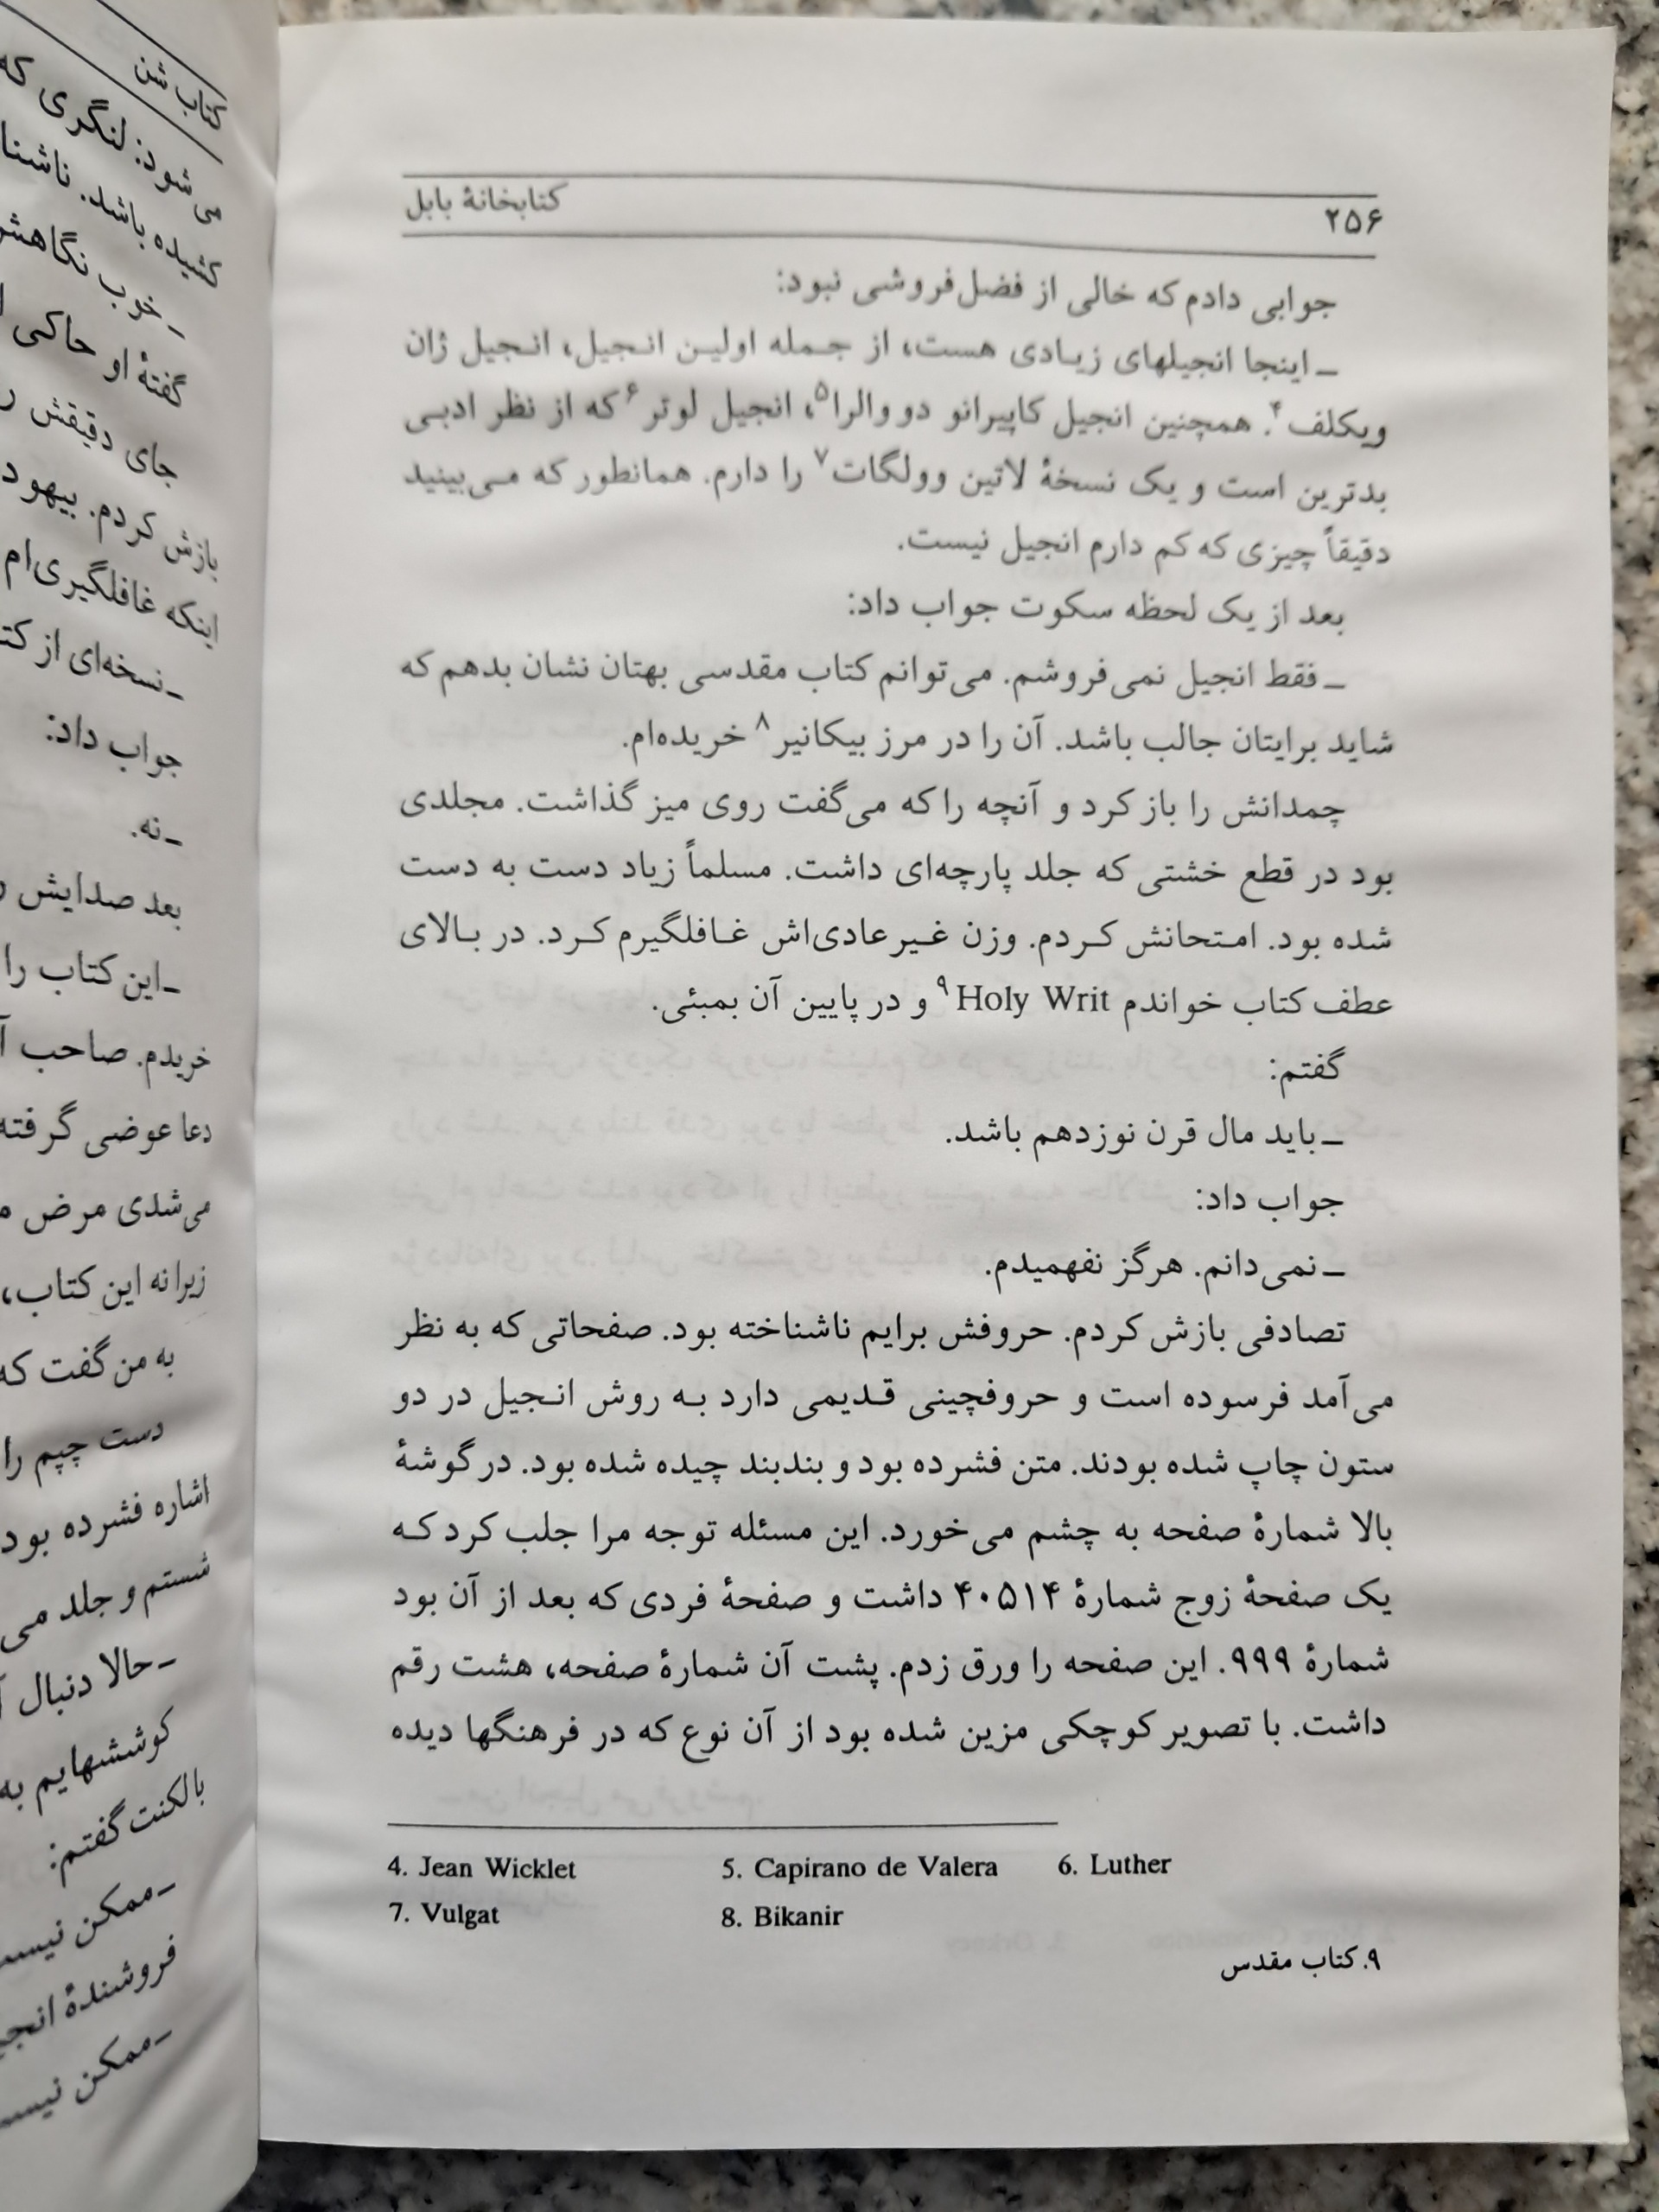 ۲۵۶
کتابخانهٔ بابل
جوابی دادم که خالی از فضل‌فروشی نبود:
ـ اینجا انجیلهای زیادی هست، از جمله اولین انجیل، انجیل ژان
ویکلف۴. همچنین انجیل کاپیرانو دو والرا۵، انجیل لوتر۶ که از نظر ادبی
بدترین است و یک نسخهٔ لاتین وولگات۷ را دارم. همانطور که می‌بینید
دقیقاً چیزی که کم دارم انجیل نیست.
بعد از یک لحظه سکوت جواب داد:
ـ فقط انجیل نمی‌فروشم. می‌توانم کتاب مقدسی بهتان نشان بدهم که
شاید برایتان جالب باشد. آن را در مرز بیکانیر۸ خریده‌ام.
چمدانش را باز کرد و آنچه را که می‌گفت روی میز گذاشت. مجلدی
بود در قطع خشتی که جلد پارچه‌ای داشت. مسلماً زیاد دست به دست
شده بود. امتحانش کردم. وزن غیرعادی‌اش غافلگیرم کرد. در بالای
عطف کتاب خواندم Holy Writ۹ و در پایین آن بمبئی.
گفتم:
ـ باید مال قرن نوزدهم باشد.
جواب داد:
ـ نمی‌دانم. هرگز نفهمیدم.
تصادفی بازش کردم. حروفش برایم ناشناخته بود. صفحاتی که به نظر
می‌آمد فرسوده است و حروفچینی قدیمی دارد به روش انجیل در دو
ستون چاپ شده بودند. متن فشرده بود و بندبند چیده شده بود. در گوشهٔ
بالا شمارهٔ صفحه به چشم می‌خورد. این مسئله توجه مرا جلب کرد که
یک صفحهٔ زوج شمارهٔ ۴۰۵۱۴ داشت و صفحهٔ فردی که بعد از آن بود
شمارهٔ ۹۹۹. این صفحه را ورق زدم. پشت آن شمارهٔ صفحه، هشت رقم
داشت. با تصویر کوچکی مزین شده بود از آن نوع که در فرهنگها دیده
4. Jean Wicklet 5. Capirano de Valera 6. Luther
7. Vulgat 8. Bikanir
۹. کتاب مقدس
کتاب شن
می‌شود: لنگری که
کشیده باشد. ناشنا
ـ خوب نگاهش
گفتهٔ او حاکی
جای دقیقش ر
بازش کردم. بیهود
اینکه غافلگیری‌ام
ـ نسخه‌ای از کت
جواب داد:
ـ نه.
بعد صدایش ر
ـ این کتاب را
خریدم. صاحب آ
دعا عوضی گرفته
می‌شدی مرض م
زیرا نه این کتاب،
به من گفت که
دست چپم را
اشاره فشرده بود
شستم و جلد می
ـ حالا دنبال آ
کوششهایم به
با لکنت گفتم:
ـ ممکن نیس
فروشندهٔ انجی
ـ ممکن نیس